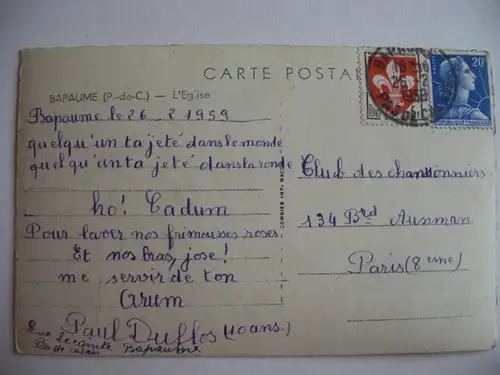 CARTE POSTAL
BAPAUME (P.-de-C.) — L'Eglise
Bapaume le 26 2 1959
quelqu'un ta jeté dans le monde
quelqu'un ta jeté dans la ronde
ho! Cadum
Pour laver nos frimousses roses
Et nos bras, jose!
me servir de ton
Arum
Paul Duflos (10 ans.)
Rue
Pas de calais Bapaume
Club des chansonniers
134 Brd
Paris (8eme)
COMBIER IMP. MACON
20F